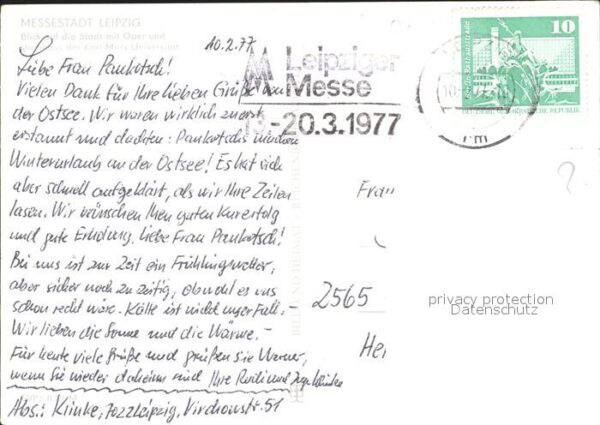 MESSESTADT LEIPZIG
Blick auf die Stadt mit Oper und
der Karl-Marx-Universität
10.2.77
Liebe Frau Pankotsch!
Vielen Dank für Ihre lieben Grüße von
der Ostsee. Wir waren wirklich zuerst
erstaunt und dachten: Pankotschs machen
Winterurlaub an der Ostsee! Es hat sich
aber schnell aufgeklärt, als wir Ihre Zeilen
lasen. Wir wünschen Ihnen guten Kurerfolg
und gute Erholung, liebe Frau Pankotsch!
Bei uns ist zur Zeit ein Frühlingswetter,
aber sicher noch zu zeitig, obwohl es uns
schon recht wäre. Kälte ist nicht unser Fall. –
Wir lieben die Sonne und die Wärme. –
Für heute viele Grüße und grüßen Sie Werner,
wenn Sie wieder daheim sind Ihre und
Abs.: Leipzig, Virchowstr. 51
Leipziger
Messe
13.-20.3.1977
10
DEUTSCHE DEMOKRATISCHE REPUBLIK
Frau
2565
Hei
privacy protection
Datenschutz